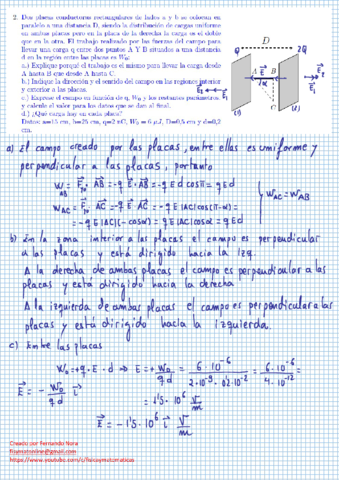 2. Dos placas conductoras rectangulares de lados a y b se colocan en
paralelo a una distancia D, siendo la distribución de cargas uniformes
en ambas placas pero en la placa de la derecha la carga es el doble
que en la otra. El trabajo realizado por las fuerzas del campo para
llevar una carga q entre dos puntos A Y B situados a una distancia
d en la región entre las placas es W₀:
a.) Explique porqué el trabajo es el mismo para llevar desde
A hasta B que desde A hasta C.
b.) Indique la dirección y el sentido del campo en las regiones interior
y exterior a las placas.
c.) Exprese el campo en función de q, W₀ y los restantes parámetros
y calcule el valor para los datos que se dan al final.
d.) ¿Qué carga hay en cada placa?
Datos: a=15 cm, b=25 cm, q=2 nC, W₀ = 6 μJ, D=0,5 cm y d=0,2
cm.
D
Q
2Q
A
B
C
E
(I)
(D)
a) El campo creado por las placas, entre ellas es uniforme y
perpendicular a las placas, por tanto
W_AB = F·AB = -q E·AB = -q E d cos π = q E d
W_AC = F·AC = -q E·AC = -q E |AC| cos(π-α) =
= -q E |AC| (-cos α) = q E |AC| cos α = q E d
W_AC = W_AB
b) En la zona interior a las placas el campo es perpendicular
a las placas y está dirigido hacia la izq.
A la derecha de ambas placas el campo es perpendicular a las
placas y está dirigido hacia la derecha
A la izquierda de ambas placas el campo es perpendicular a las
placas y está dirigido hacia la izquierda.
c) Entre las placas
W₀ = +q · E · d ⇒ E = + W₀/(q d) = 6·10⁻⁶/(2·10⁻⁹·0'2·10⁻²) = 6·10⁻⁶/(4·10⁻¹²) =
E = - W₀/(q d) i
= 1'5·10⁶ V/m
E = -1'5·10⁶ i V/m
Creado por Fernando Nora
fiqamatonline@gmail.com